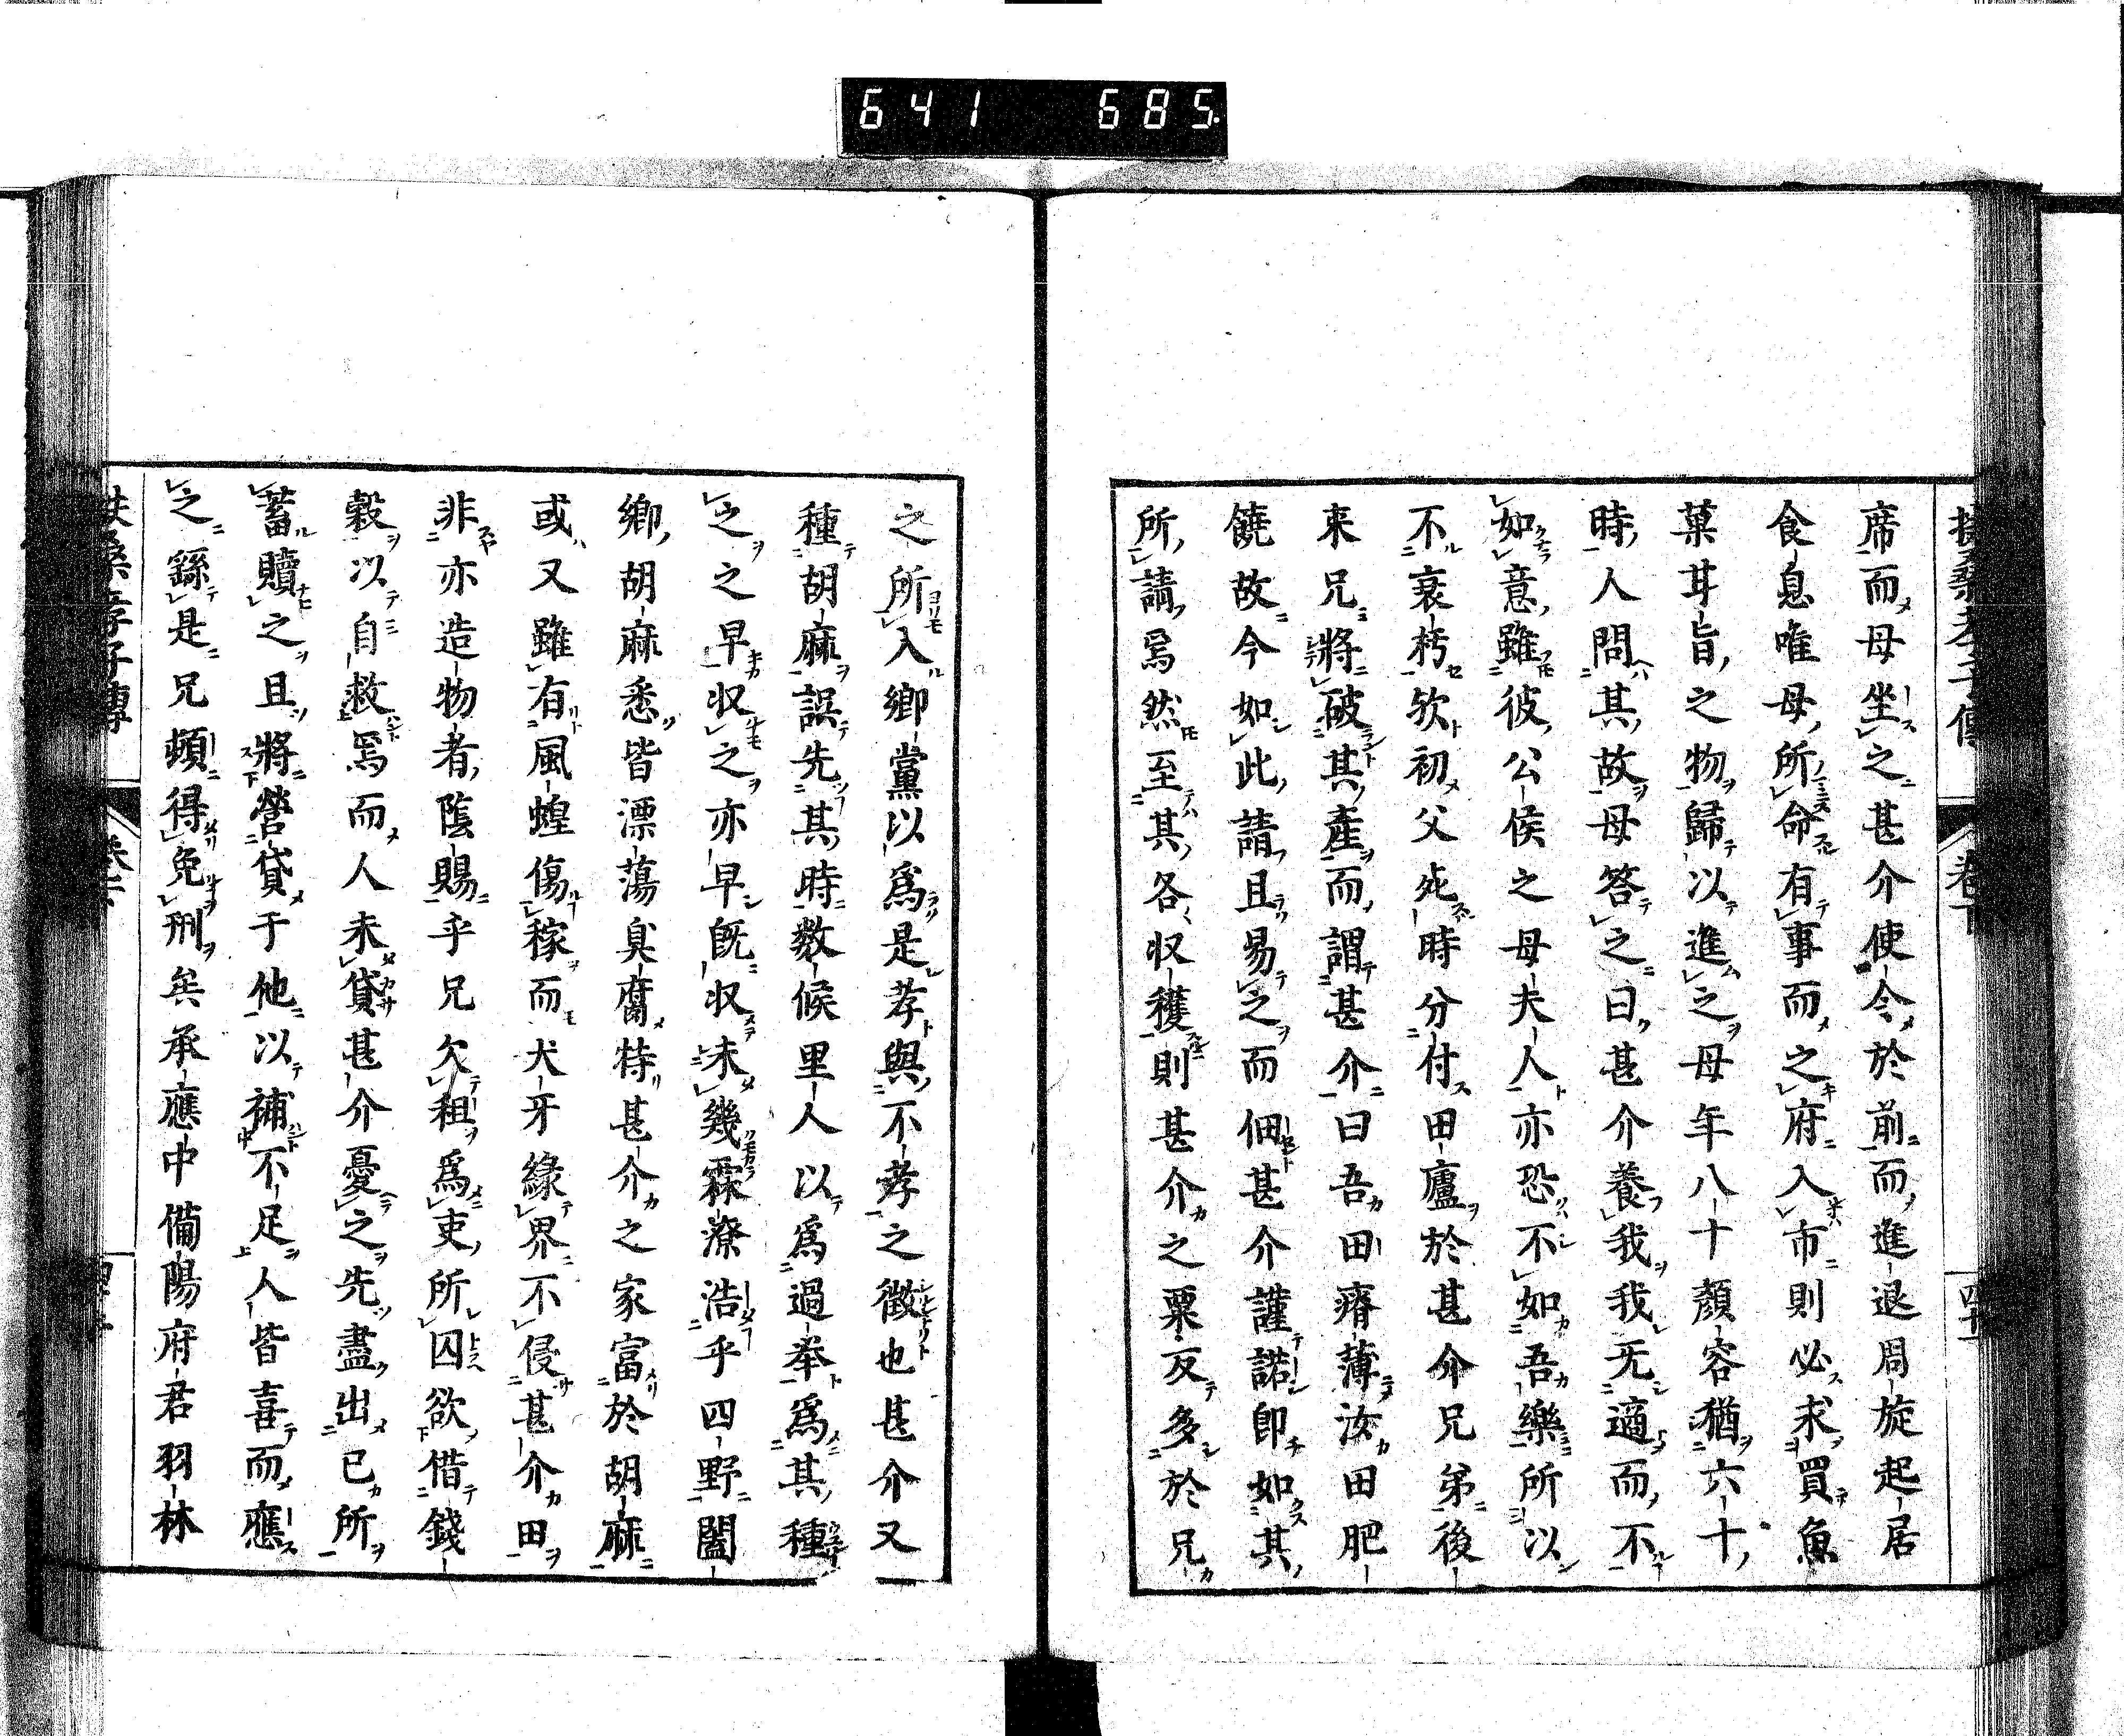 641 685
扶桑孝子傳 卷下 四十一
席而母坐之甚介使令於前而進退周旋起居
食息唯母所命有事而之府入市則必求買魚
菓甘旨之物歸以進之母年八十顏容猶六十
時人問其故母答之曰甚介養我我无適而不
如意雖彼公侯之母夫人亦恐不如吾樂所以
不衰朽欤初父死時分付田廬於甚介兄弟後
来兄將破其產而謂甚介曰吾田瘠薄汝田肥
饒故今如此請且易之而佃甚介謹諾即如其
所請爲然至其各収穫則甚介之粟反多於兄
之所入鄉黨以爲是孝與不孝之徵也甚介又
種胡麻誤先其時数候里人以爲過举爲其種
之之早収之亦早既収未幾霖潦浩乎四野闔
鄉胡麻悉皆漂蕩臭腐特甚介之家富於胡麻
或又雖有風蝗傷稼而犬牙緣界不侵甚介田
非亦造物者陰賜乎兄欠租爲吏所囚欲借錢
穀以自救焉而人未貸甚介憂之先盡出已所
蓄贖之且將營貸于他以補不足人皆喜而應
之繇是兄頓得免刑矣承應中備陽府君羽林
扶桑孝子傳